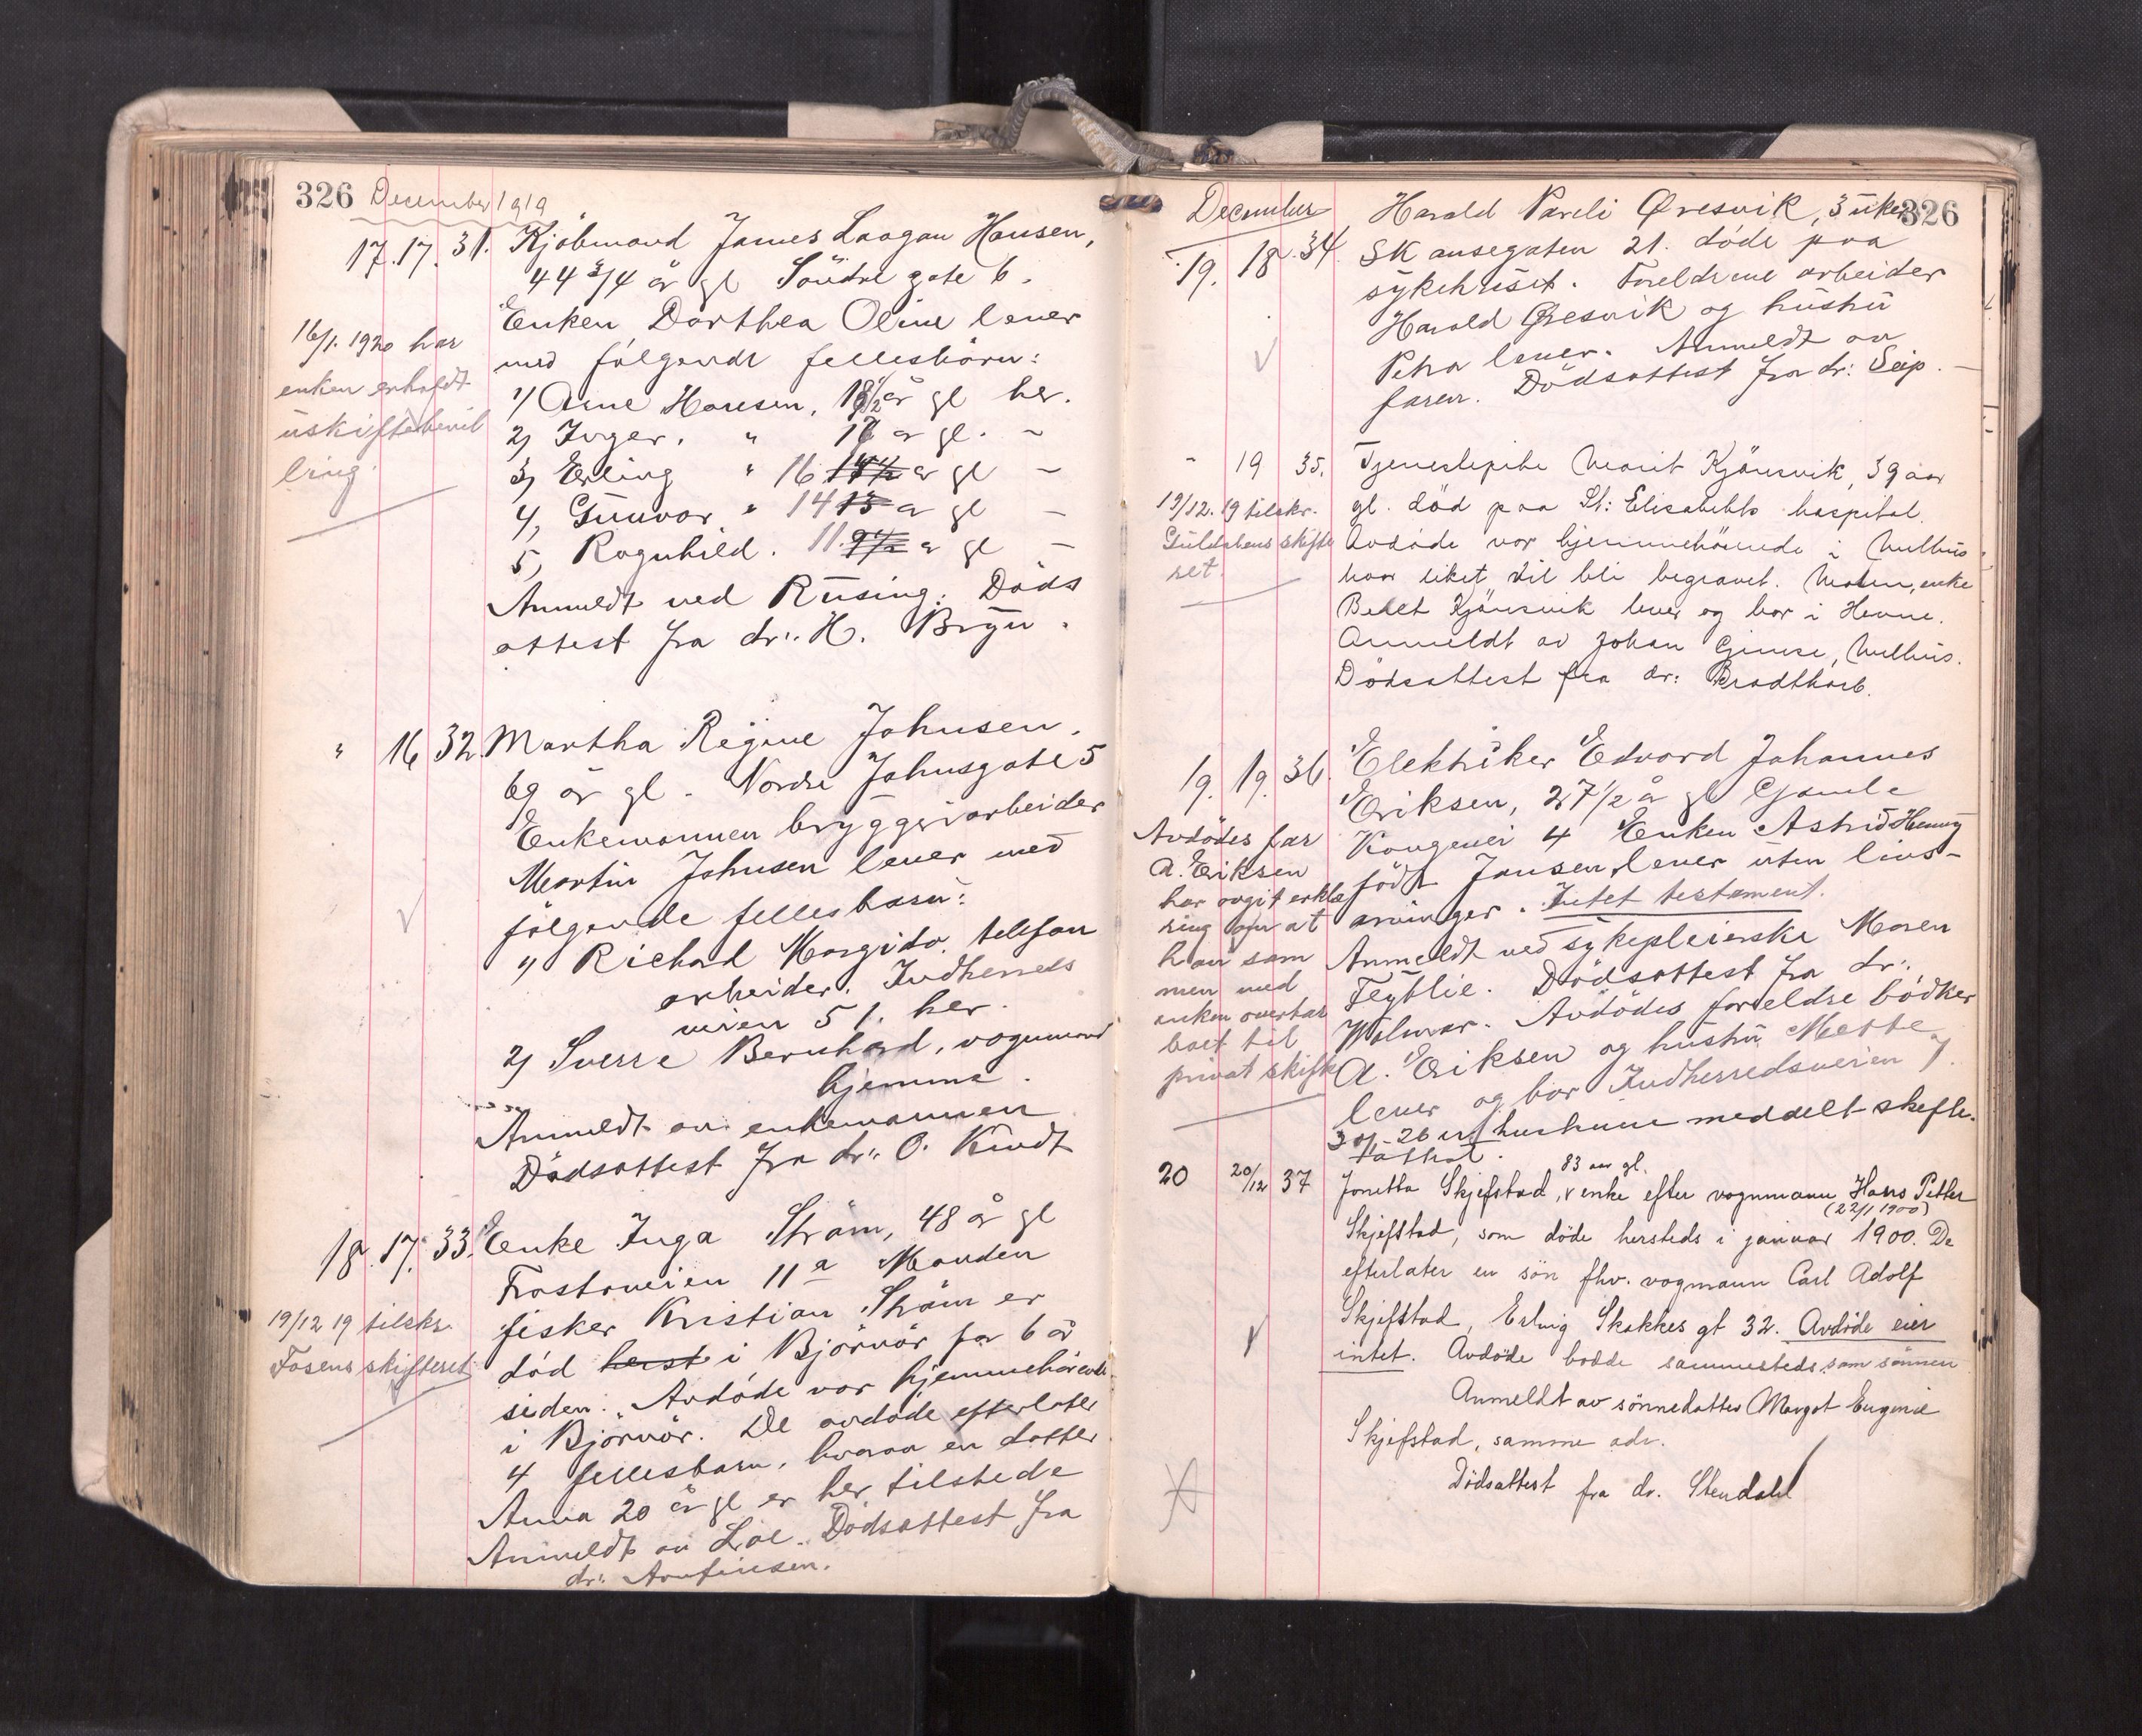 326 December 1919
17. 17. 31. Kjøbmand James Laagan Hansen,
44 3/4 år gl Söndre gate 6.
Enken Dorthea Oline lever
med følgende fellesbörn:
1) Arne Hansen, 18 1/2 år gl her.
2) Inger. " 17 år gl. -
3) Erling " 16 14 1/2 år gl -
4) Gunvor " 14 13 år gl -
5) Ragnhild. 11. 9 1/2 år gl -
Anmeldt ved Rüsing. Döds
attest fra dr: H. Bryn.
16/1. 1920 har
enken erholdt
uskiftebevil
ling.
" 16 32. Martha Regine Johnsen.
69 år gl. Nordre Johnsgate 5
Enkemannen bryggeriarbeider
Martin Johnsen lever med
følgende fellesbarn:
1) Richard Margido. telefon
arbeider. Indherreds
veien 51. her.
2) Sverre Bernhard, vognmand
hjemme.
Anmeldt av enkemannen
Dödsattest fra dr: O. Kindt
18. 17. 33. Enke Inga Ström, 48 år gl
Frostaveien 11a Manden
fisker Kristian Ström er
död herst i Björnör for 6 år
siden. Avdöde var hjemmehörende
i Björnör. De avdöde efterlater
4 fellesbarn, hvorav en datter
Anna 20 år gl er her tilstede
Anmeldt av Loe. Dödsattest fra
dr: Arnfinsen.
19/12 19 tilskr.
Fosens skifteret
December 326
19. 18. 34. Harald Pareli Øresvik, 3 uker
Skansegaten 21. döde paa
sykehuset. Foreldrene arbeider
Harald Øresvik og hustru
Petra lever. Anmeldt av
faren. Dödsattest fra dr: Seip.
" 19 35. Tjenestepike Marit Kjönsvik, 39 aar
gl. död paa St: Elisabeths hospital.
Avdöde var hjemmehörende i Melhus
hvor liket vil bli begravet. Moren, enke
Beret Kjönsvik lever og bor i Hevne.
Anmeldt av Johan Gimse, Melhus.
Dödsattest fra dr: Bradthorb.
19/12. 19 tilskr.
Guldalens skifte
ret.
19. 19. 36. Elektriker Edvard Johannes
Eriksen, 27 1/2 år gl Gamle
Kongevei 4 Enken Astrid Henny
født Jansen, lever uten livs-
arvinger. Intet testament.
Anmeldt ved sykepleierske Maren
Feyblie. Dödsattest fra dr:
Wolmar. Avdödes foreldre bödker
A. Eriksen og hustru Mette
lever og bor Indherredsveien 7.
30/1-20 er hustruen meddelt skifte-
attest.
Avdödes far
A. Eriksen
har avgit erklæ
ring om at
han sam
men med
enken overtar
boet til
privat skifte
20 20/12 37 Jonetta Skjefstad, 83 aar gl. enke efter vognmann Hans Petter
Skjefstad, som döde hersteds i januar 1900. (22/1 1900) De
efterlater en sön fhv. vogmann Carl Adolf
Skjefstad, Erling Skakkes gt 32. Avdöde eier
intet. Avdöde bodde sammesteds som sönnen
Anmeldt av sönnedatter Margot Eugenie
Skjefstad, samme adr.
Dödsattest fra dr. Stendahl